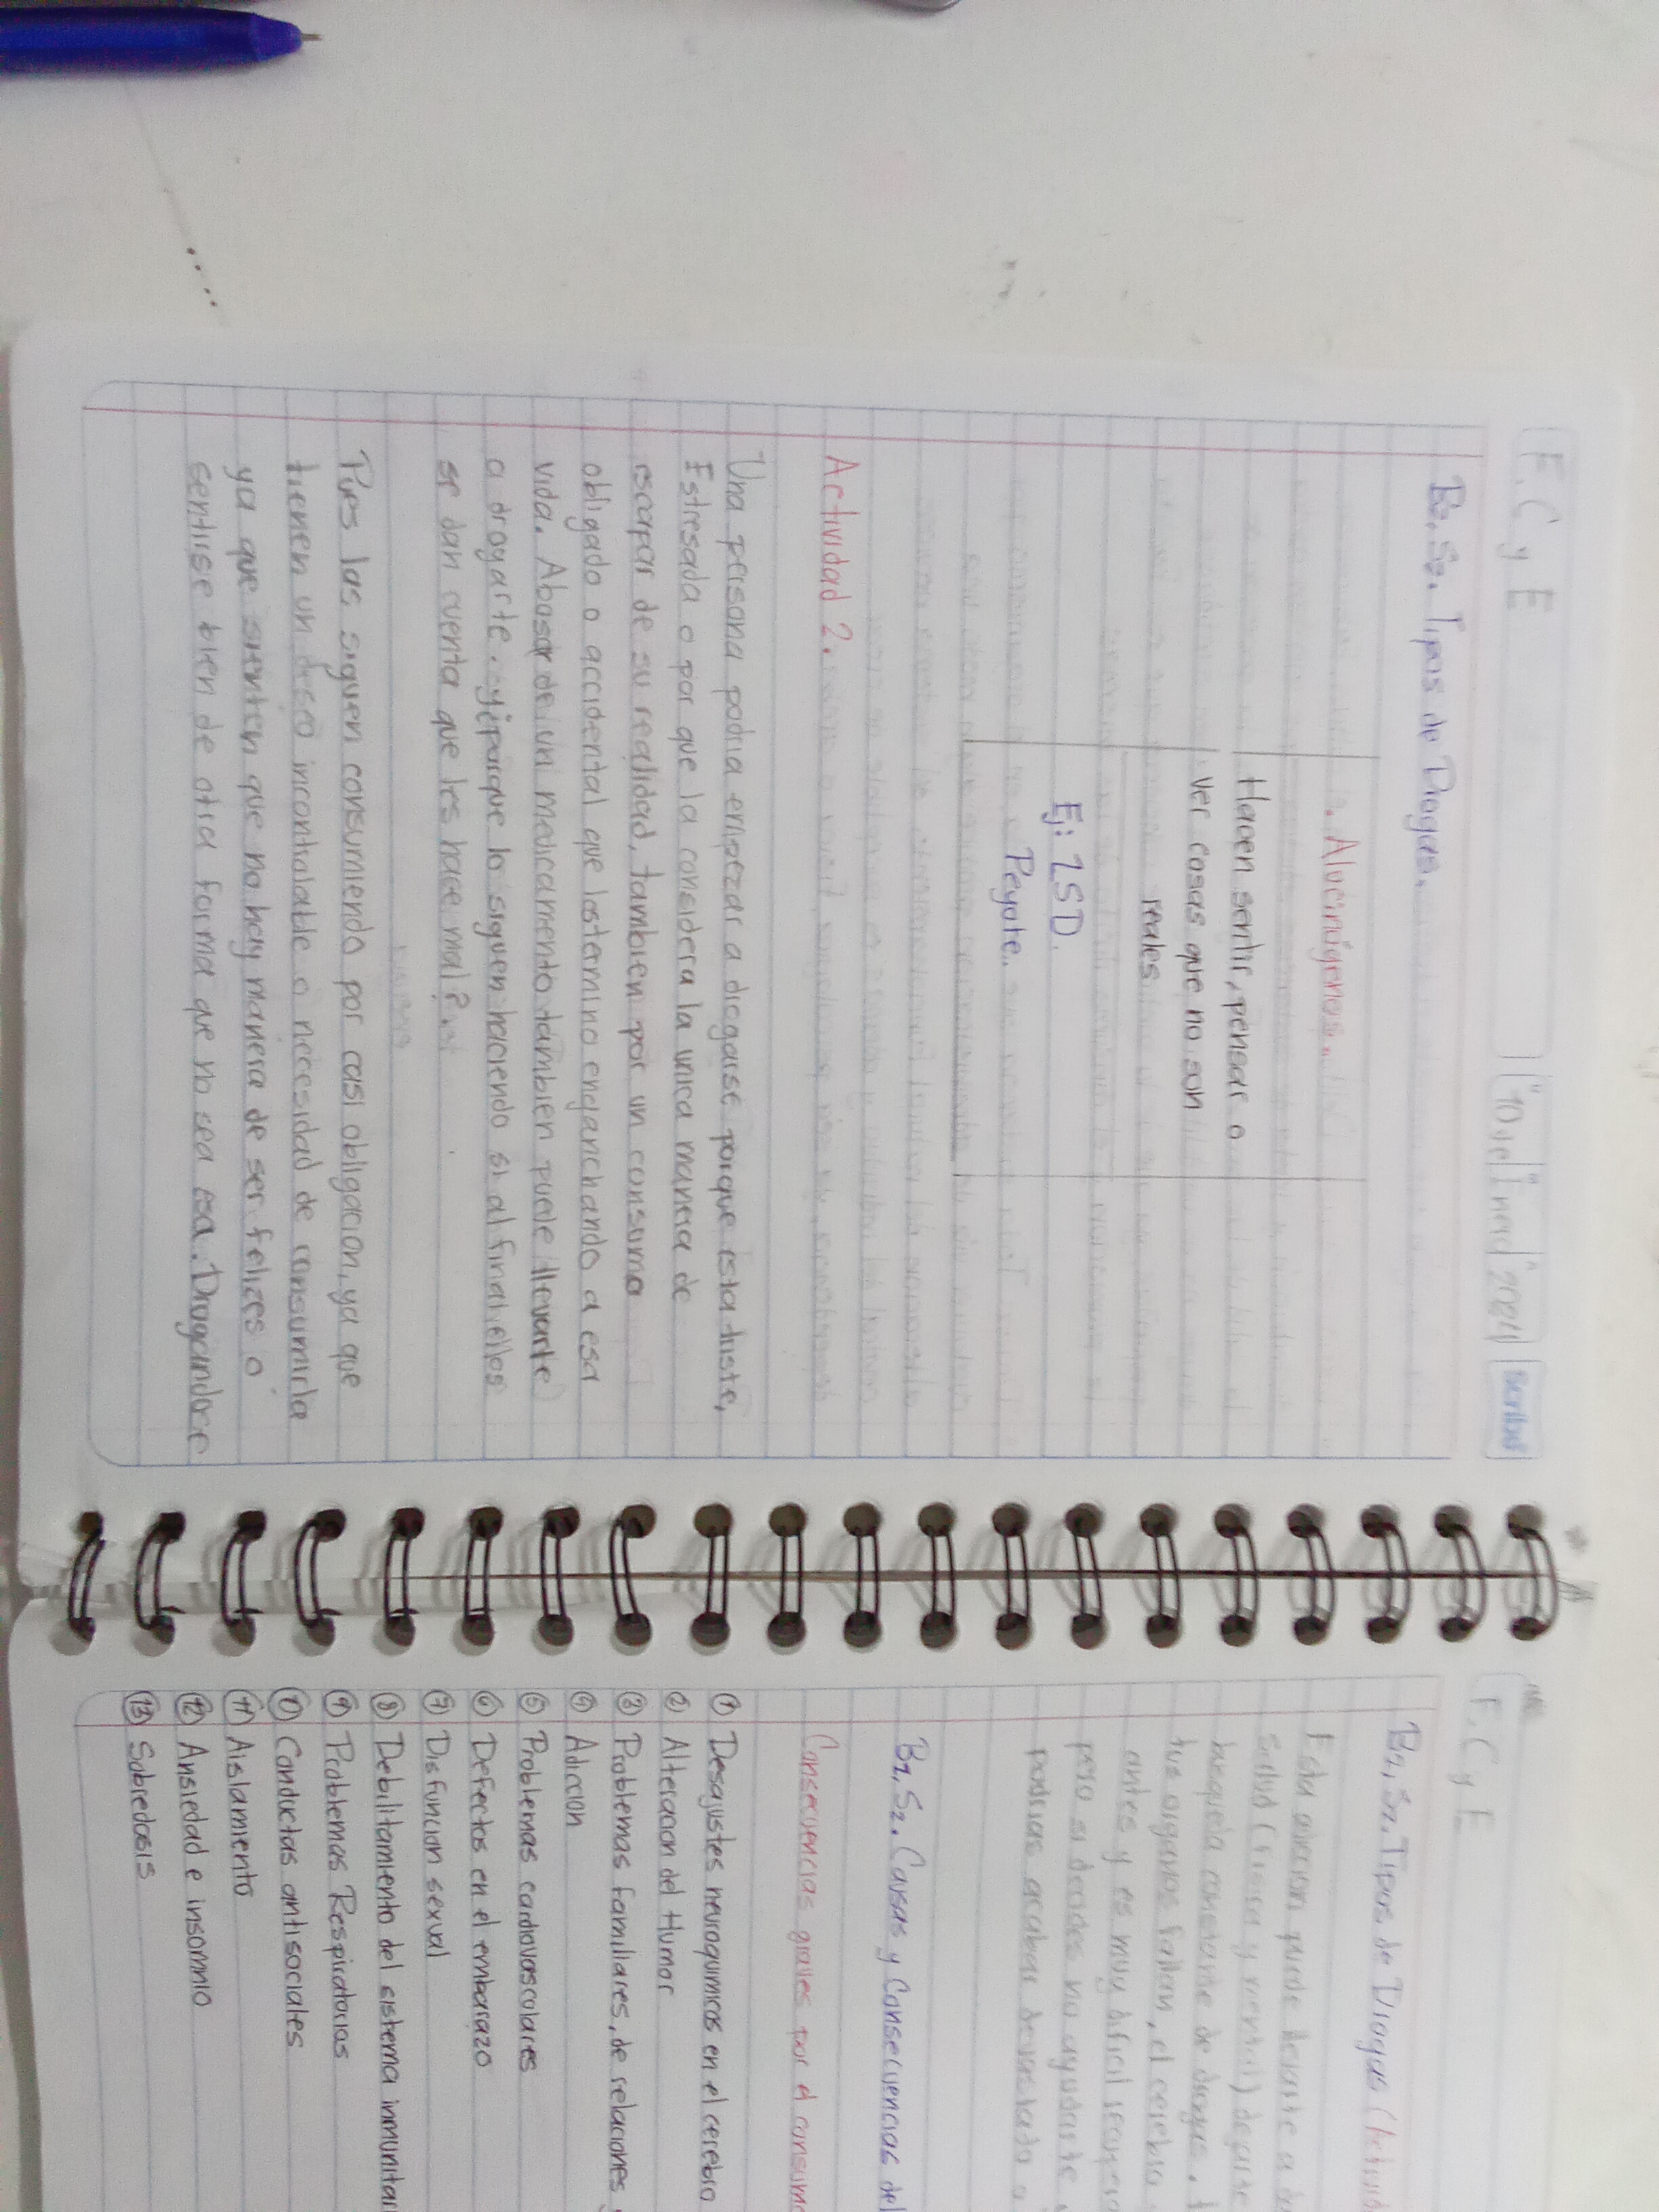 F. C y E
Scribe
B2, S2. Tipos de Drogas.
Alucinógenos.
Hacen sentir, pensar o
ver cosas que no son
reales
Ej: LSD.
Peyote.
Actividad 2.
Una persona podria empezar a drogarse porque esta triste,
Estresada o por que la considera la unica manera de
escapar de su realidad, tambien por un consumo
obligado o accidental que los termino enganchando a esa
vida. Abusar de un medicamento tambien puede llevarte
a drogarte. porque lo siguen haciendo si al final ellos
se dan cuenta que les hace mal?
Pues las siguen consumiendo por casi obligacion, ya que
tienen un deseo incontrolable o necesidad de consumirla
ya que sienten que no hay manera de ser felizes o
sentirse bien de otra forma que no sea esa. Drogandose
F. C y E
B2, S2. Tipos de Drogas
Esta adiccion puede llevarte a
salud (fisica y mental) departe
busquela constante de drogas.
tus organos fallan, el cerebro
antes y es muy dificil
pero si decides no ayudarte
podrias acabar devastado o
B2, S2. Causas y Consecuencias del
Consecuencias graves por el consumo
① Desajustes neuroquimicos en el cerebro
② Alteracion del Humor
③ Problemas familiares, de relaciones
④ Adiccion
⑤ Problemas cardiovasculares
⑥ Defectos en el embarazo
⑦ Disfuncion sexual
⑧ Debilitamiento del sistema inmunitar
⑨ Problemas Respiratorios
⑩ Conductas antisociales
⑪ Aislamiento
⑫ Ansiedad e insomnio
⑬ Sobredosis